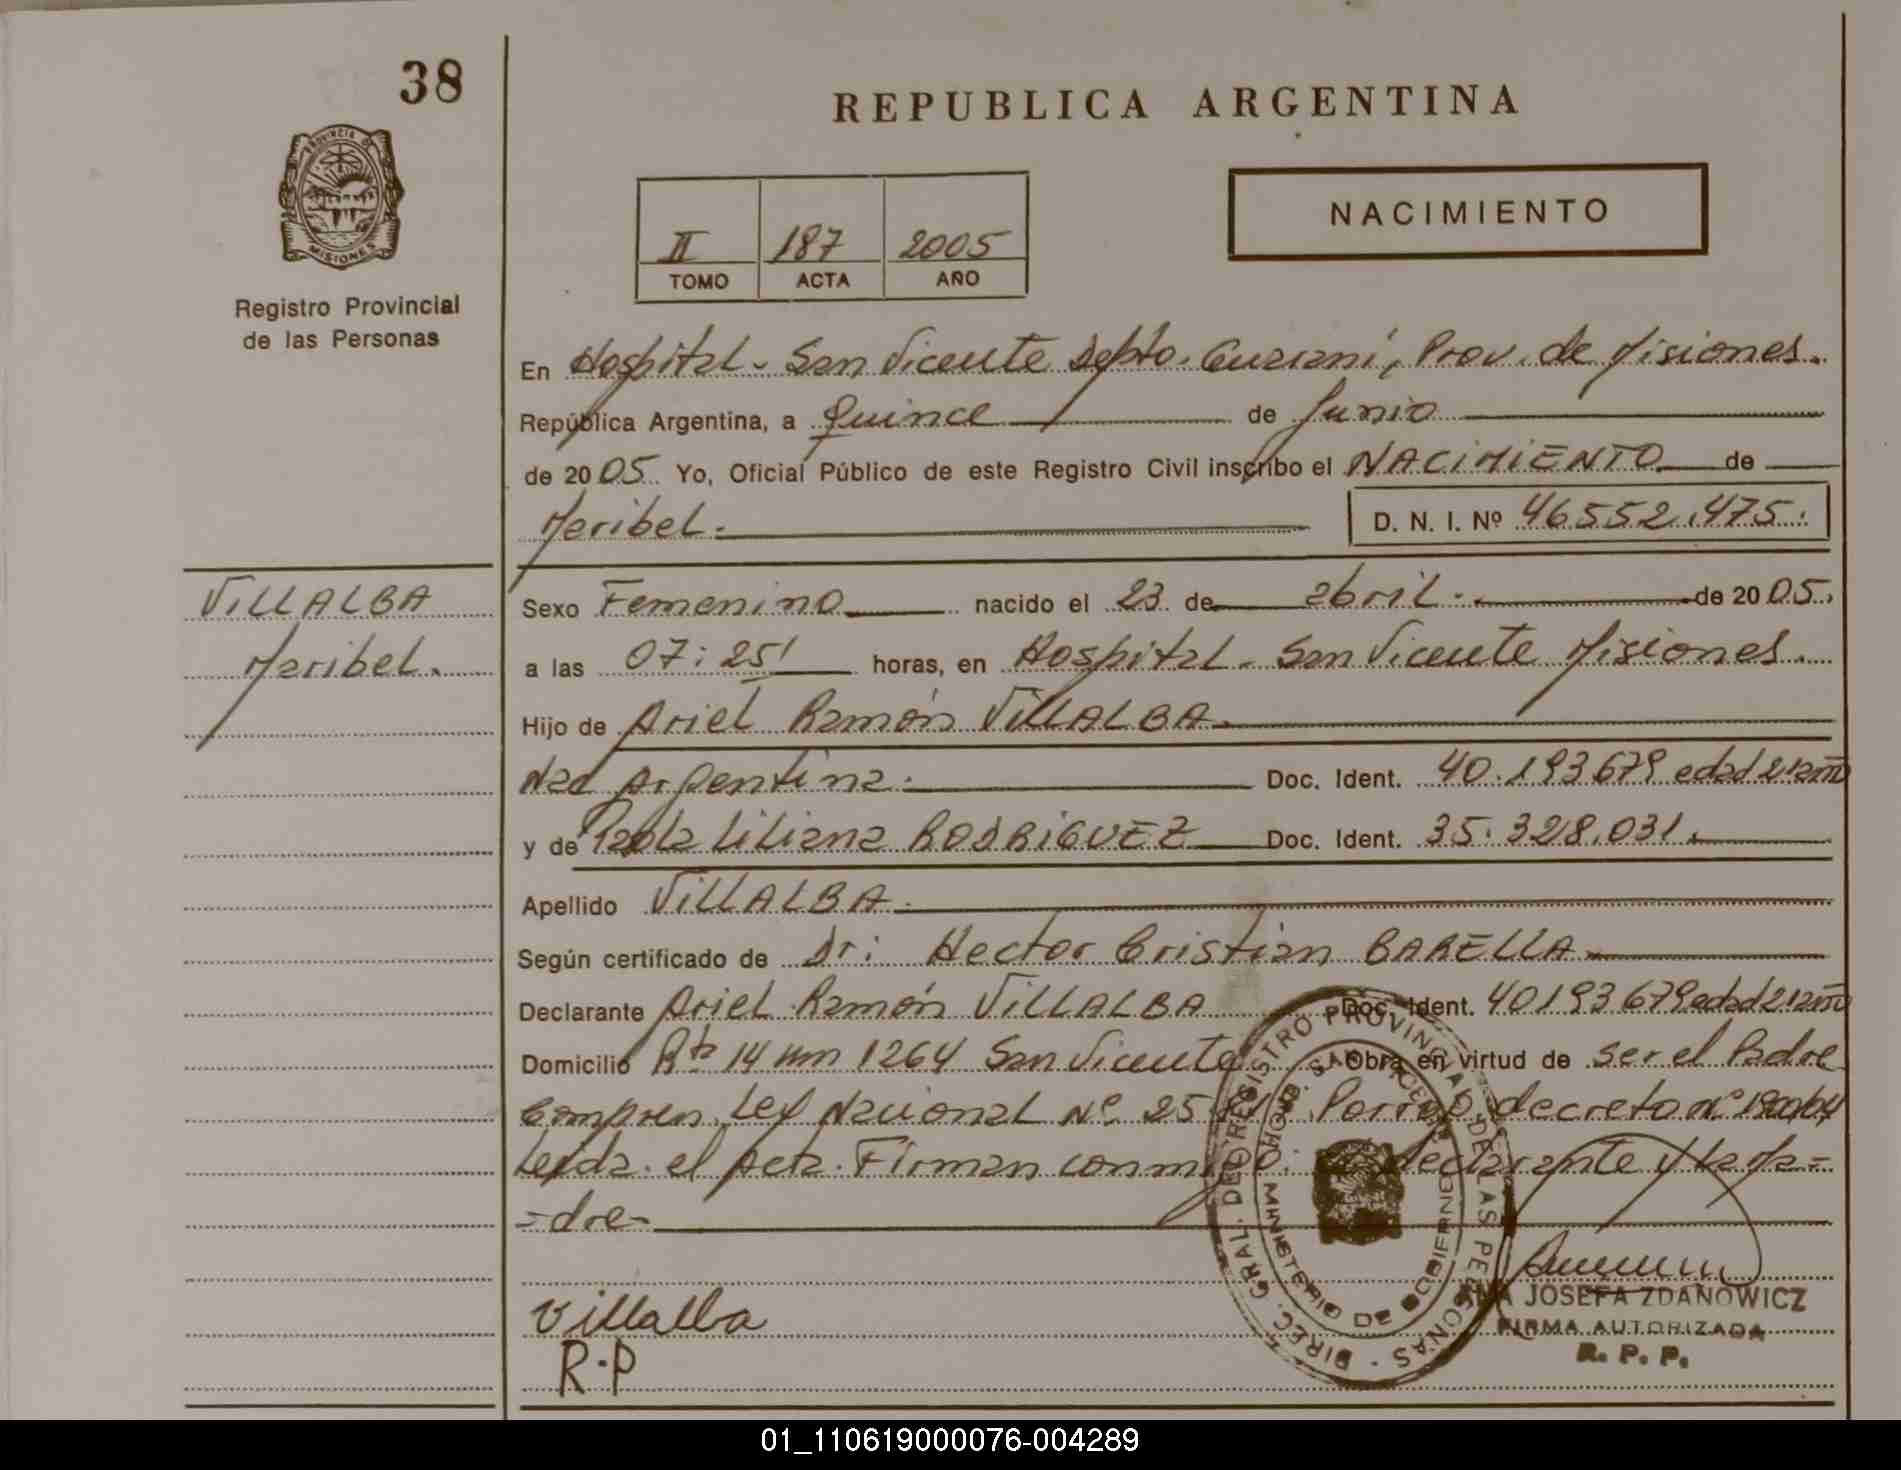 38
PROVINCIA DE
MISIONES
Registro Provincial
de las Personas
REPUBLICA ARGENTINA
II 187 2005
TOMO ACTA AÑO
NACIMIENTO
En Hospital - San Vicente Depto. Guaraní, Prov. de Misiones.
República Argentina, a Quince de Junio
de 2005. Yo, Oficial Público de este Registro Civil inscribo el NACIMIENTO de
Maribel.
D. N. I. Nº 46552.475.
VILLALBA
Maribel.
Sexo Femenino nacido el 23 de abril. de 2005.
a las 07:25' horas, en Hospital - San Vicente Misiones.
Hijo de Ariel Ramón VILLALBA.
Nac Argentina. Doc. Ident. 40.193679 edad 21 año
y de Paola Liliana RODRIGUEZ Doc. Ident. 35.328.031.
Apellido VILLALBA.
Según certificado de Dr: Hector Cristian BARELLA
Declarante Ariel Ramón VILLALBA Doc. Ident. 40193679 edad 21 año
Domicilio Rta 14 km 1264 San Vicente Obra en virtud de ser el Padre
Compren. Ley Nacional Nº 25 decreto nº
Leída el acta. Firman conmigo: declarante y la Ma=
=dre-
Villalba
R.P
DIREC. GRAL. DEL REGISTRO PROVINCIAL DE LAS PERSONAS
MINISTERIO DE GOBIERNO
ANA JOSEFA ZDANOWICZ
FIRMA AUTORIZADA
R. P. P.
01_110619000076-004289